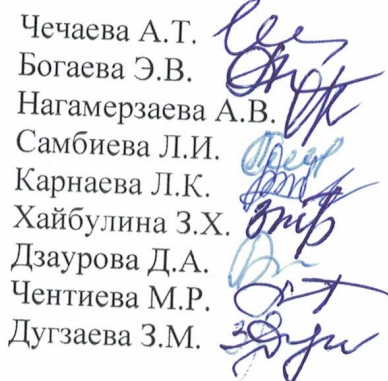 Чечаева А.Т.
Богаева Э.В.
Нагамерзаева А.В.
Самбиева Л.И.
Карнаева Л.К.
Хайбулина З.Х.
Дзаурова Д.А.
Чентиева М.Р.
Дугзаева З.М.